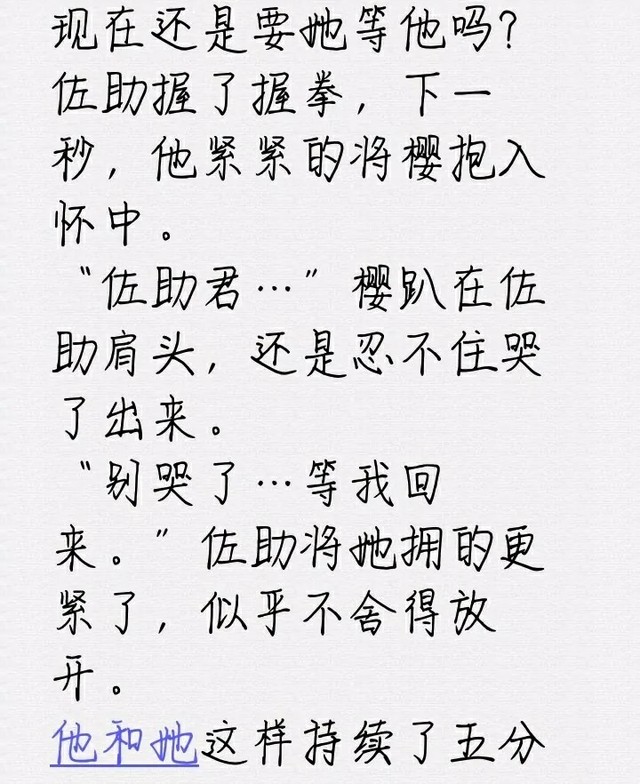 现在还是要她等他吗？
佐助握了握拳，下一
秒，他紧紧的将樱抱入
怀中。
“佐助君…”樱趴在佐
助肩头，还是忍不住哭
了出来。
“别哭了…等我回
来。”佐助将她拥的更
紧了，似乎不舍得放
开。
他和她这样持续了五分